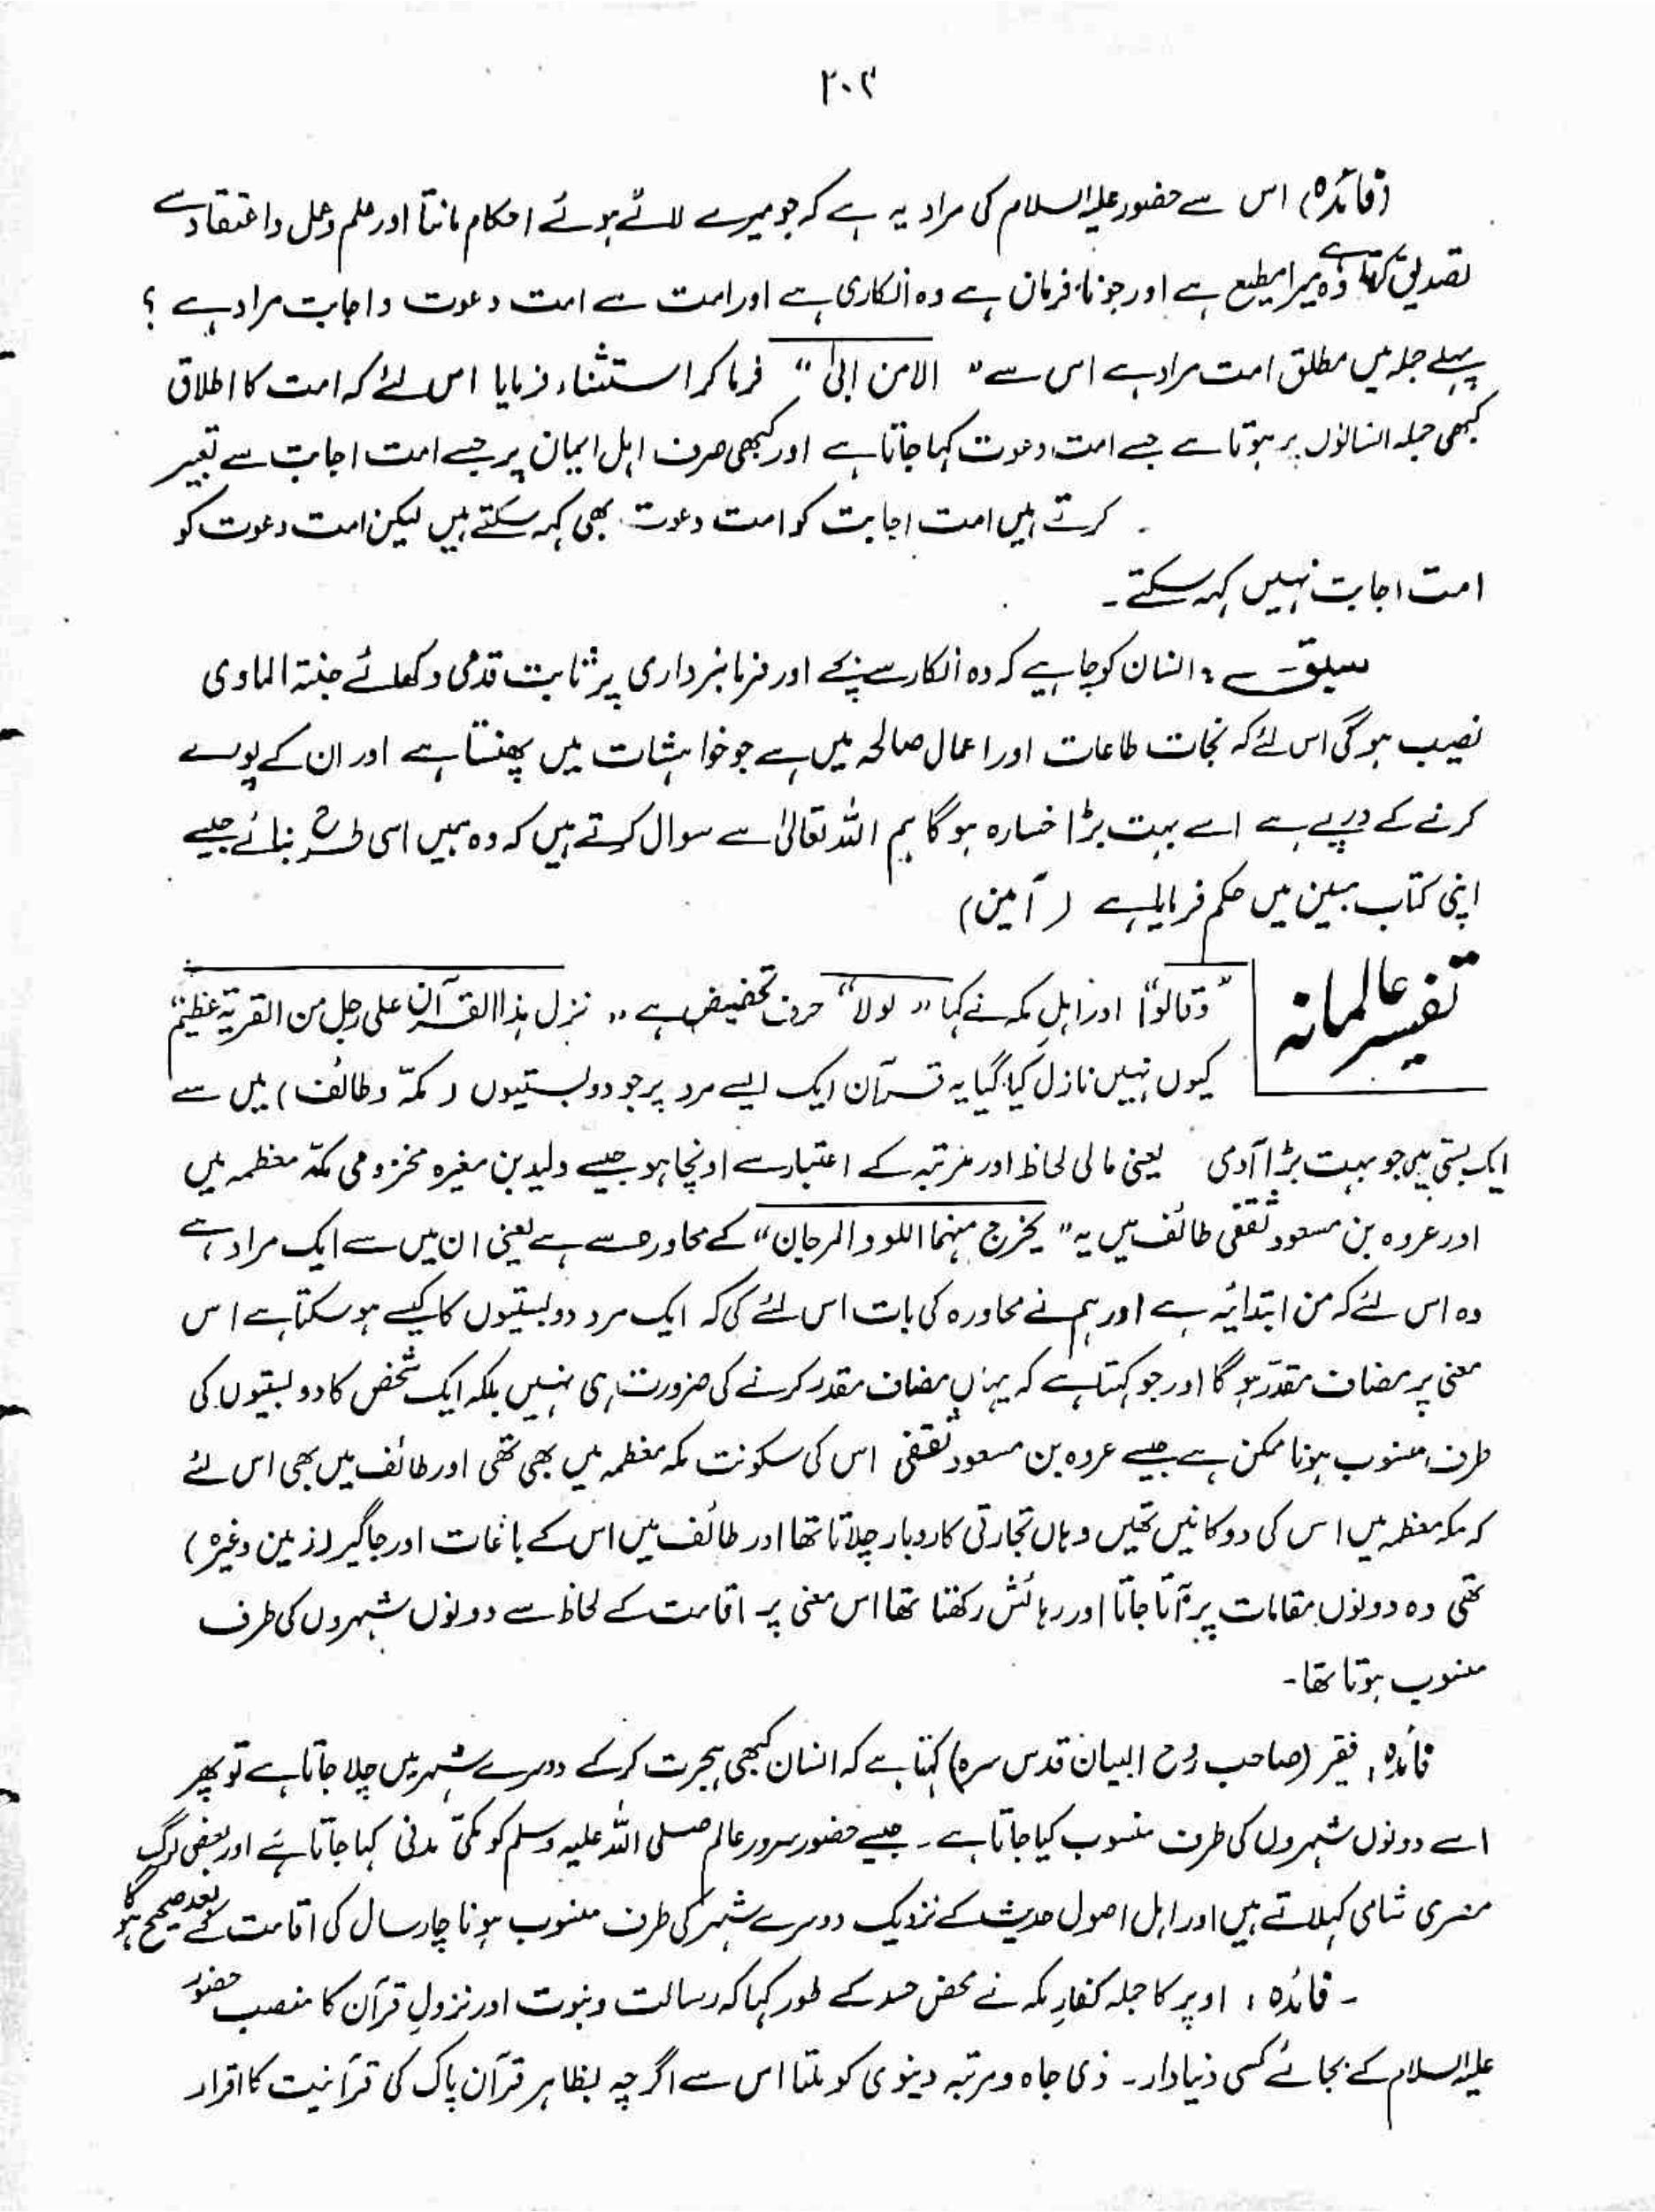 ۲۰۴
(فائدہ) اس سے حضور علیہ السلام کی مراد یہ ہے کہ جو میرے لائے ہوئے احکام مانتا اور علم و عمل و اعتقاد سے
تصدیق کرتا ہے وہ میرا مطیع ہے اور جو نافرمان ہے وہ انکاری ہے اور امت سے امت دعوت و اجابت مراد ہے ؟
پہلے جملہ میں مطلق امت مراد ہے اس سے " الامن ابیٰ " فرما کر استثناء فرمایا اس لئے کہ امت کا اطلاق
کبھی جملہ انسانوں پر ہوتا ہے جسے امت دعوت کہا جاتا ہے اور کبھی صرف اہل ایمان پر جسے امت اجابت سے تعبیر
کرتے ہیں امت اجابت کو امت دعوت بھی کہہ سکتے ہیں لیکن امت دعوت کو
امت اجابت نہیں کہہ سکتے۔
سبق : انسان کو چاہیے کہ وہ انکار سے بچے اور فرمانبرداری پر ثابت قدمی دکھلائے جنۃ الماوی
نصیب ہوگی اس لئے کہ نجات طاعات اور اعمال صالحہ میں ہے جو خواہشات میں پھنستا ہے اور ان کے پورے
کرنے کے درپے ہے اسے بہت بڑا خسارہ ہوگا ہم اللہ تعالیٰ سے سوال کرتے ہیں کہ وہ ہمیں اسی طرح بنائے جیسے
اپنی کتاب مبین میں حکم فرمایا ہے ( آمین)
تفسیر عالمانہ
" وقالوا" اور اہل مکہ نے کہا " لولا" حرف تحضیض ہے " نزل ہذا القرآن علی رجل من القریۃ عظیم"
کیوں نہیں نازل کیا گیا یہ قرآن ایک ایسے مرد پر جو دو بستیوں ( مکہ و طائف) میں سے
ایک بستی میں جو بہت بڑا آدمی یعنی مالی لحاظ اور مرتبہ کے اعتبار سے اونچا ہو جیسے ولید بن مغیرہ مخزومی مکہ معظمہ میں
اور عروہ بن مسعود ثقفی طائف میں یہ " یخرج منہما اللو والمرجان" کے محاورہ سے ہے یعنی ان میں سے ایک مراد ہے
وہ اس لئے کہ من ابتدائیہ ہے اور ہم نے محاورہ کی بات اس لئے کی کہ ایک مرد دو بستیوں کا کیسے ہو سکتا ہے اس
معنی پر مضاف مقدر ہوگا اور جو کہتا ہے کہ یہاں مضاف مقدر کرنے کی ضرورت ہی نہیں بلکہ ایک شخص کا دو بستیوں کی
طرف منسوب ہونا ممکن ہے جیسے عروہ بن مسعود ثقفی اس کی سکونت مکہ معظمہ میں بھی تھی اور طائف میں بھی اس لئے
کہ مکہ معظمہ میں اس کی دوکانیں تھیں وہاں تجارتی کاروبار چلاتا تھا اور طائف میں اس کے باغات اور جاگیر (زمین وغیرہ)
تھی وہ دونوں مقامات پر آتا جاتا اور رہائش رکھتا تھا اس معنی پر اقامت کے لحاظ سے دونوں شہروں کی طرف
منسوب ہوتا تھا۔
فائدہ : فقیر (صاحب روح البیان قدس سرہ) کہتا ہے کہ انسان کبھی ہجرت کرکے دوسرے شہر میں چلا جاتا ہے تو پھر
اسے دونوں شہروں کی طرف منسوب کیا جاتا ہے۔ جیسے حضور سرور عالم صلی اللہ علیہ وسلم کو مکی مدنی کہا جاتا ہے اور بعض لوگ
مصری شامی کہلاتے ہیں اور اہل اصول حدیث کے نزدیک دوسرے شہر کی طرف منسوب ہونا چار سال کی اقامت کے بعد صحیح ہوگا
۔ فائدہ : اوپر کا جملہ کفار مکہ نے محض حسد کے طور کہا کہ رسالت و نبوت اور نزول قرآن کا منصب حضور
علیہ السلام کے بجائے کسی دنیادار۔ ذی جاہ و مرتبہ دنیوی کو ملتا اس سے اگرچہ بظاہر قرآن پاک کی قرآنیت کا اقرار